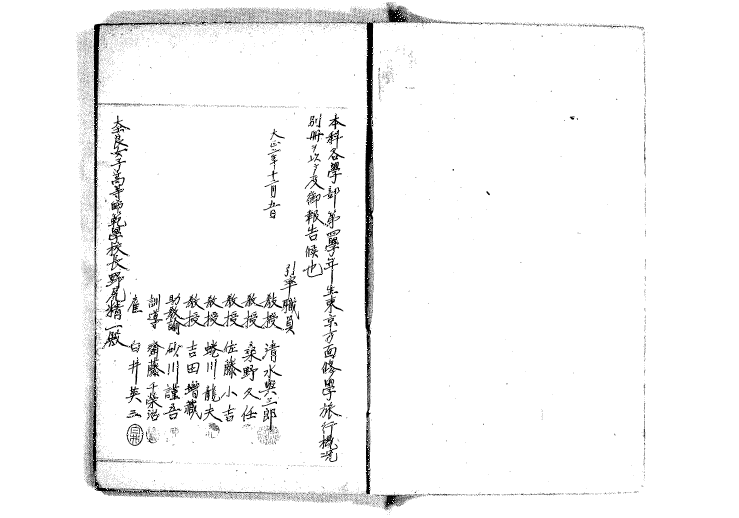 本科各學部第四學年生東京方面修學旅行概况
別冊ヲ以テ及御報告候也
大正二年十二月五日
引率職員
教授 清水與三郎
教授 桑野久任
教授 佐藤小吉
教授 蜷川龍夫
教授 吉田増蔵
助教諭 砂川謹吾
訓導 齋藤千榮治
雇 臼井英三
奈良女子高等師範學校長野尻精一殿